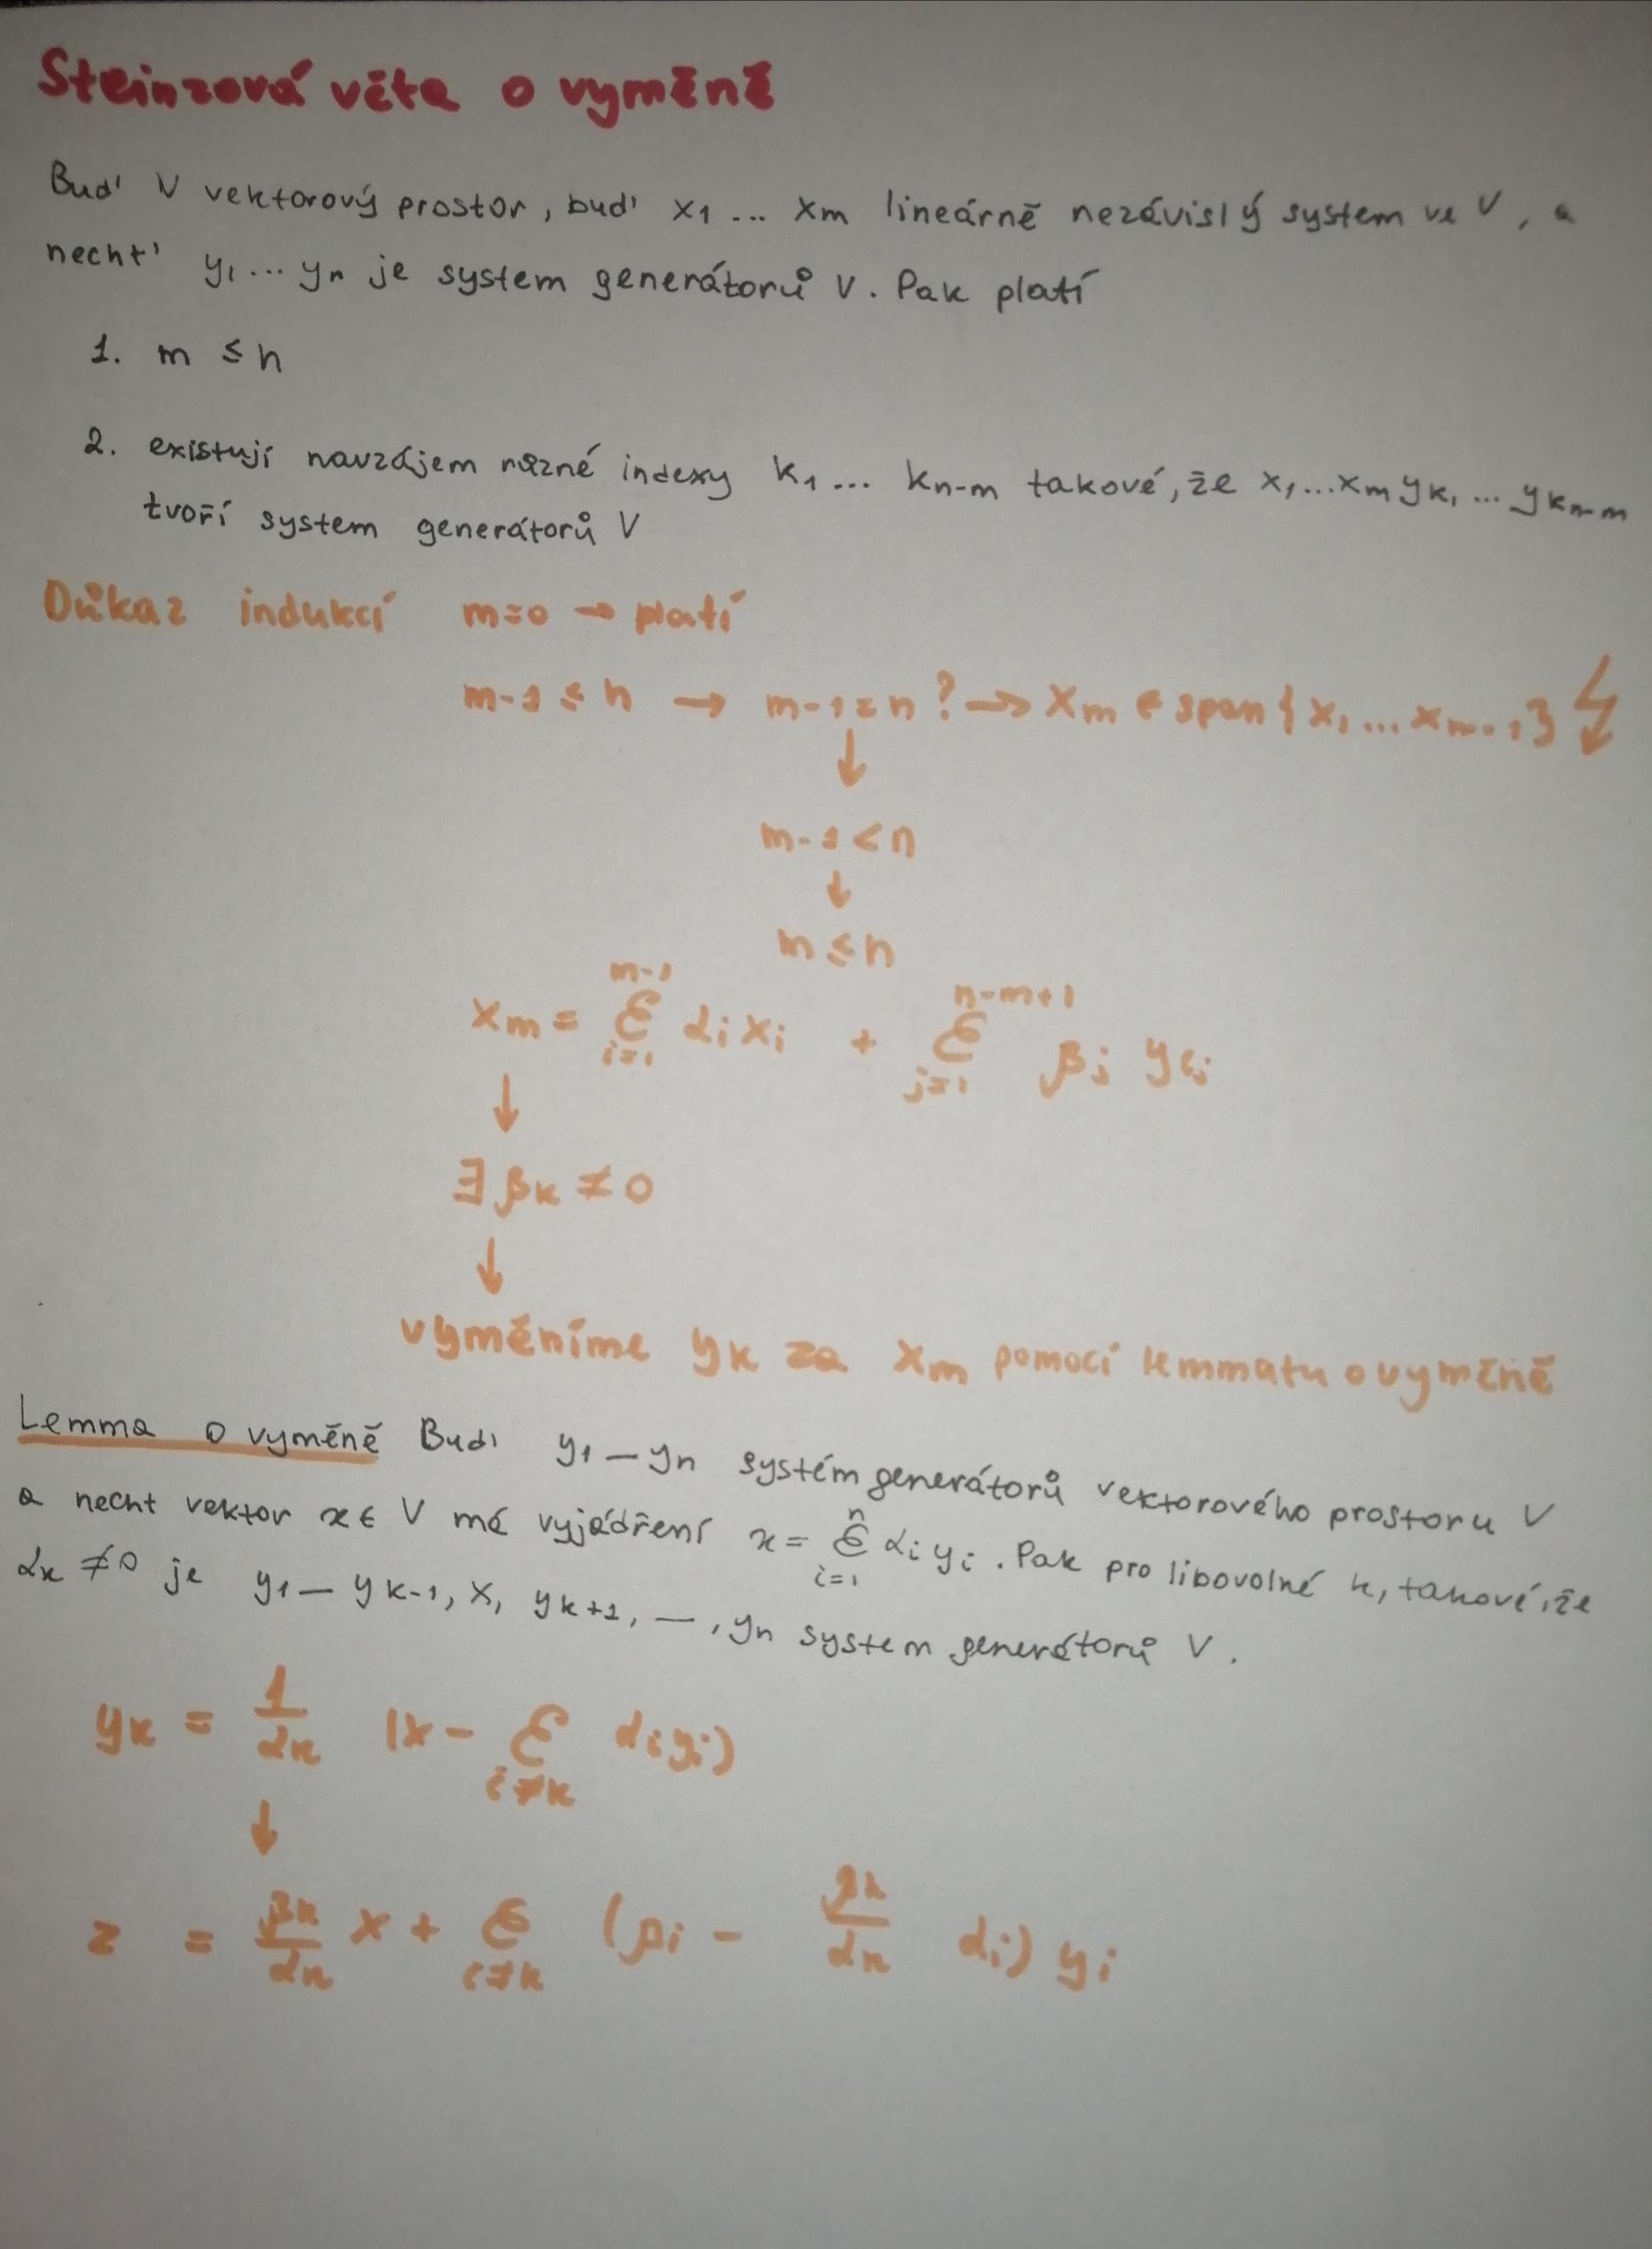 Steinzová věta o vyměně
Buď V vektorový prostor, buď x1 ... xm lineárně nezávislý system ve V, a
nechť y1 ... yn je system generátorů V. Pak platí
1. m ≤ n
2. existují navzájem různé indexy k1 ... kn-m takové, že x1 ... xm yk1 ... ykn-m
tvoří system generátorů V
Důkaz indukcí m=0 → platí
m-1 ≤ n → m-1=n? → xm ∈ span{x1 ... xm-1} ↯
↓
m-1 < n
↓
m ≤ n
xm = Σ_{i=1}^{m-1} αi xi + Σ_{j=1}^{n-m+1} βj yℓj
↓
∃ βk ≠ 0
↓
vyměníme yk za xm pomocí lemmatu o vyměně
Lemma o vyměně Buď y1 — yn systém generátorů vektorového prostoru V
a necht vektor x ∈ V má vyjádření x = Σ_{i=1}^{n} αi yi. Pak pro libovolné k, takové, že
αk ≠ 0 je y1 — yk-1, x, yk+1, —, yn system generátorů V.
yk = 1/αk (x - Σ_{i≠k} αi yi)
↓
z = βk/αk x + Σ_{i≠k} (βi - βk/αk αi) yi